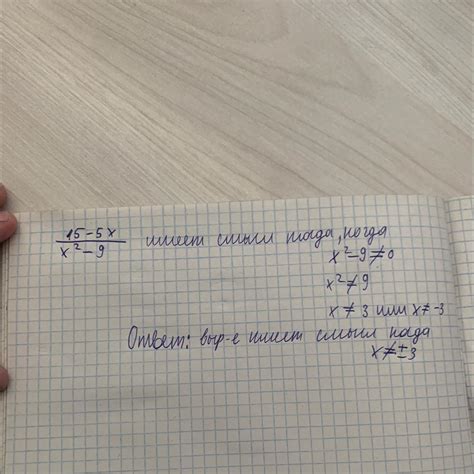 15-5x / x²-9 имеет смысл тогда, когда
x²-9≠0
x²≠9
x≠3 или x≠-3
Ответ: выр-е имеет смысл когда
x≠±3